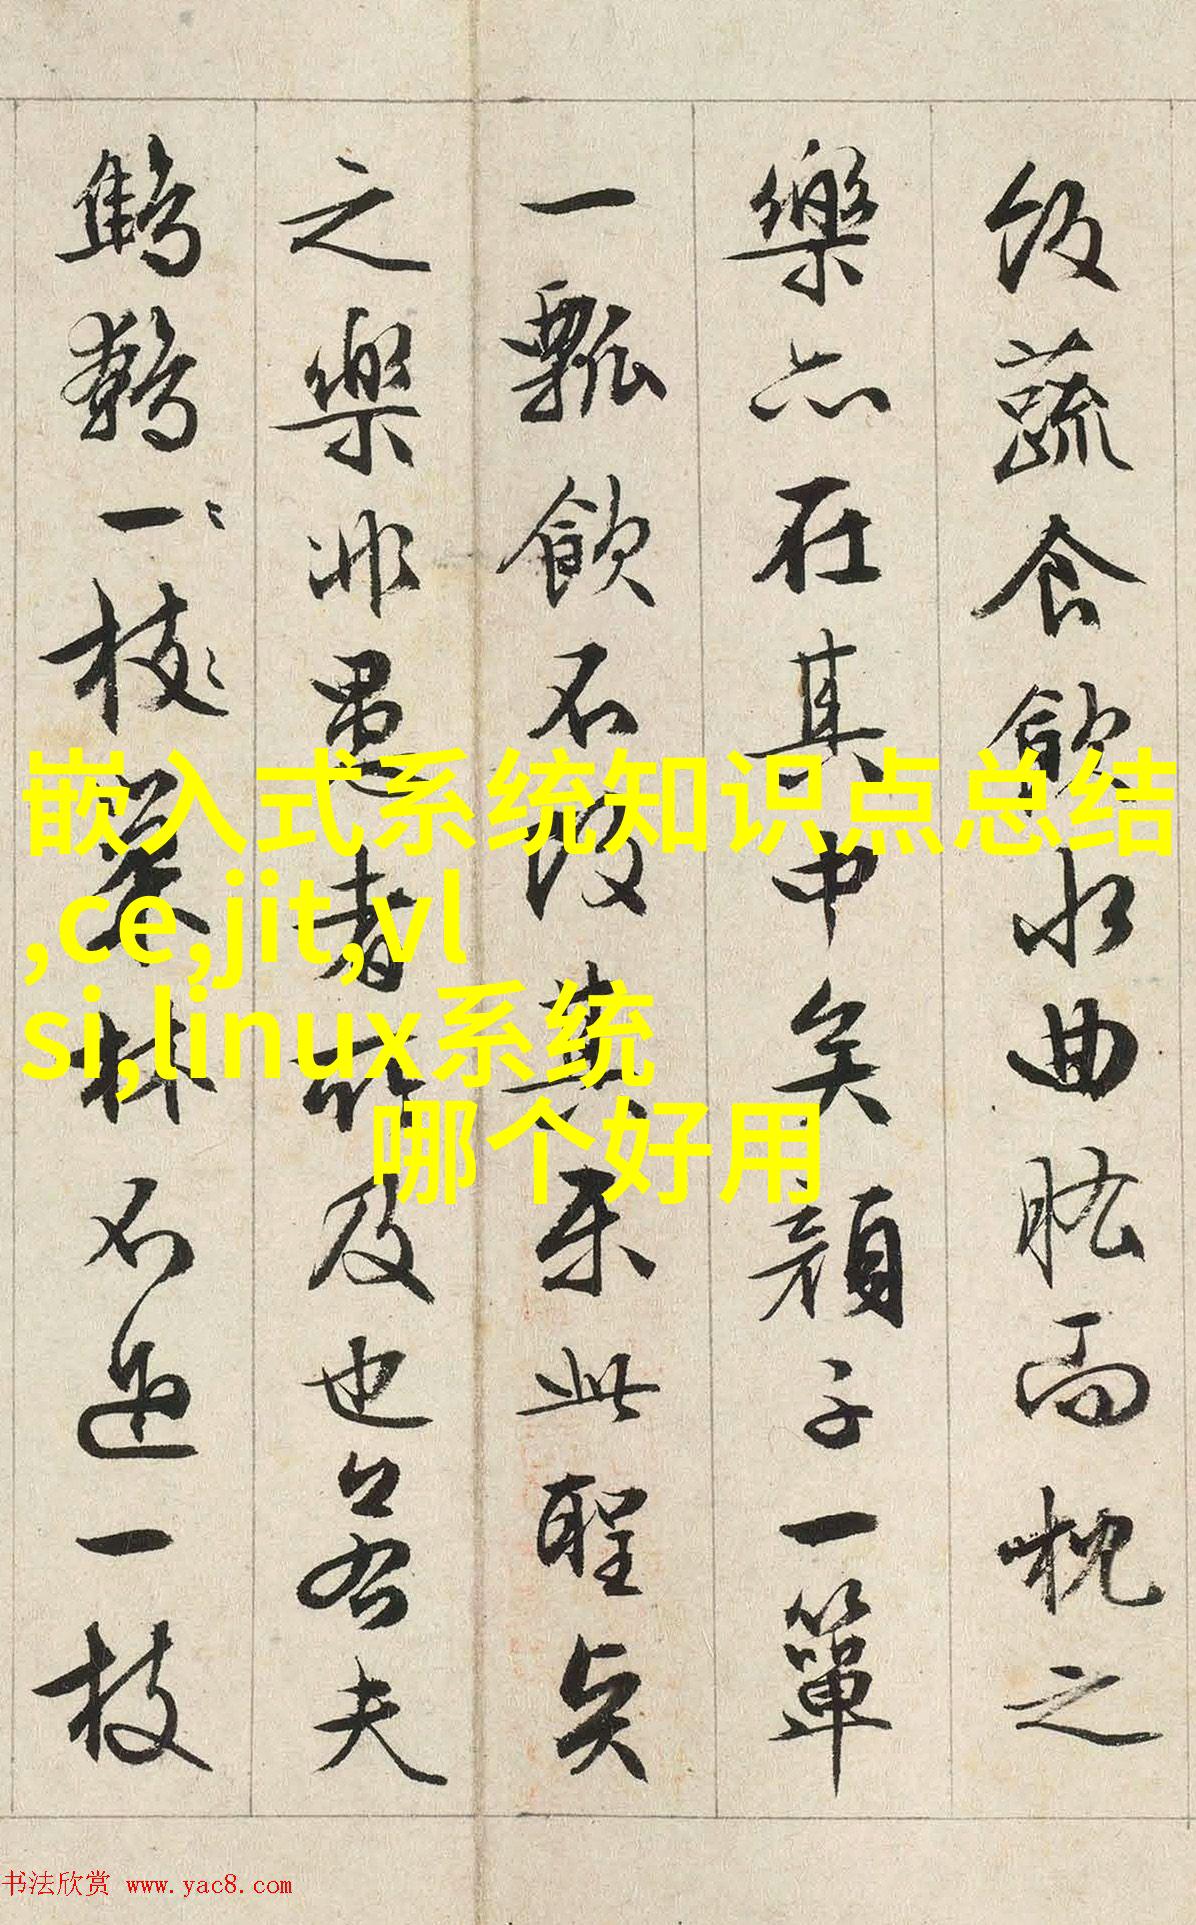 飯蔬食飲水曲肱而枕之
樂亦在其中矣顏子一簞
一瓢飲不改其樂此聖賢
之樂非愚者所及也若夫
鷦鷯一枝巢林不過一枝
嵌入式系统知识点总结
,ce,jit,vl
si,linux系统
哪个好用
书法欣赏 www.yac8.com